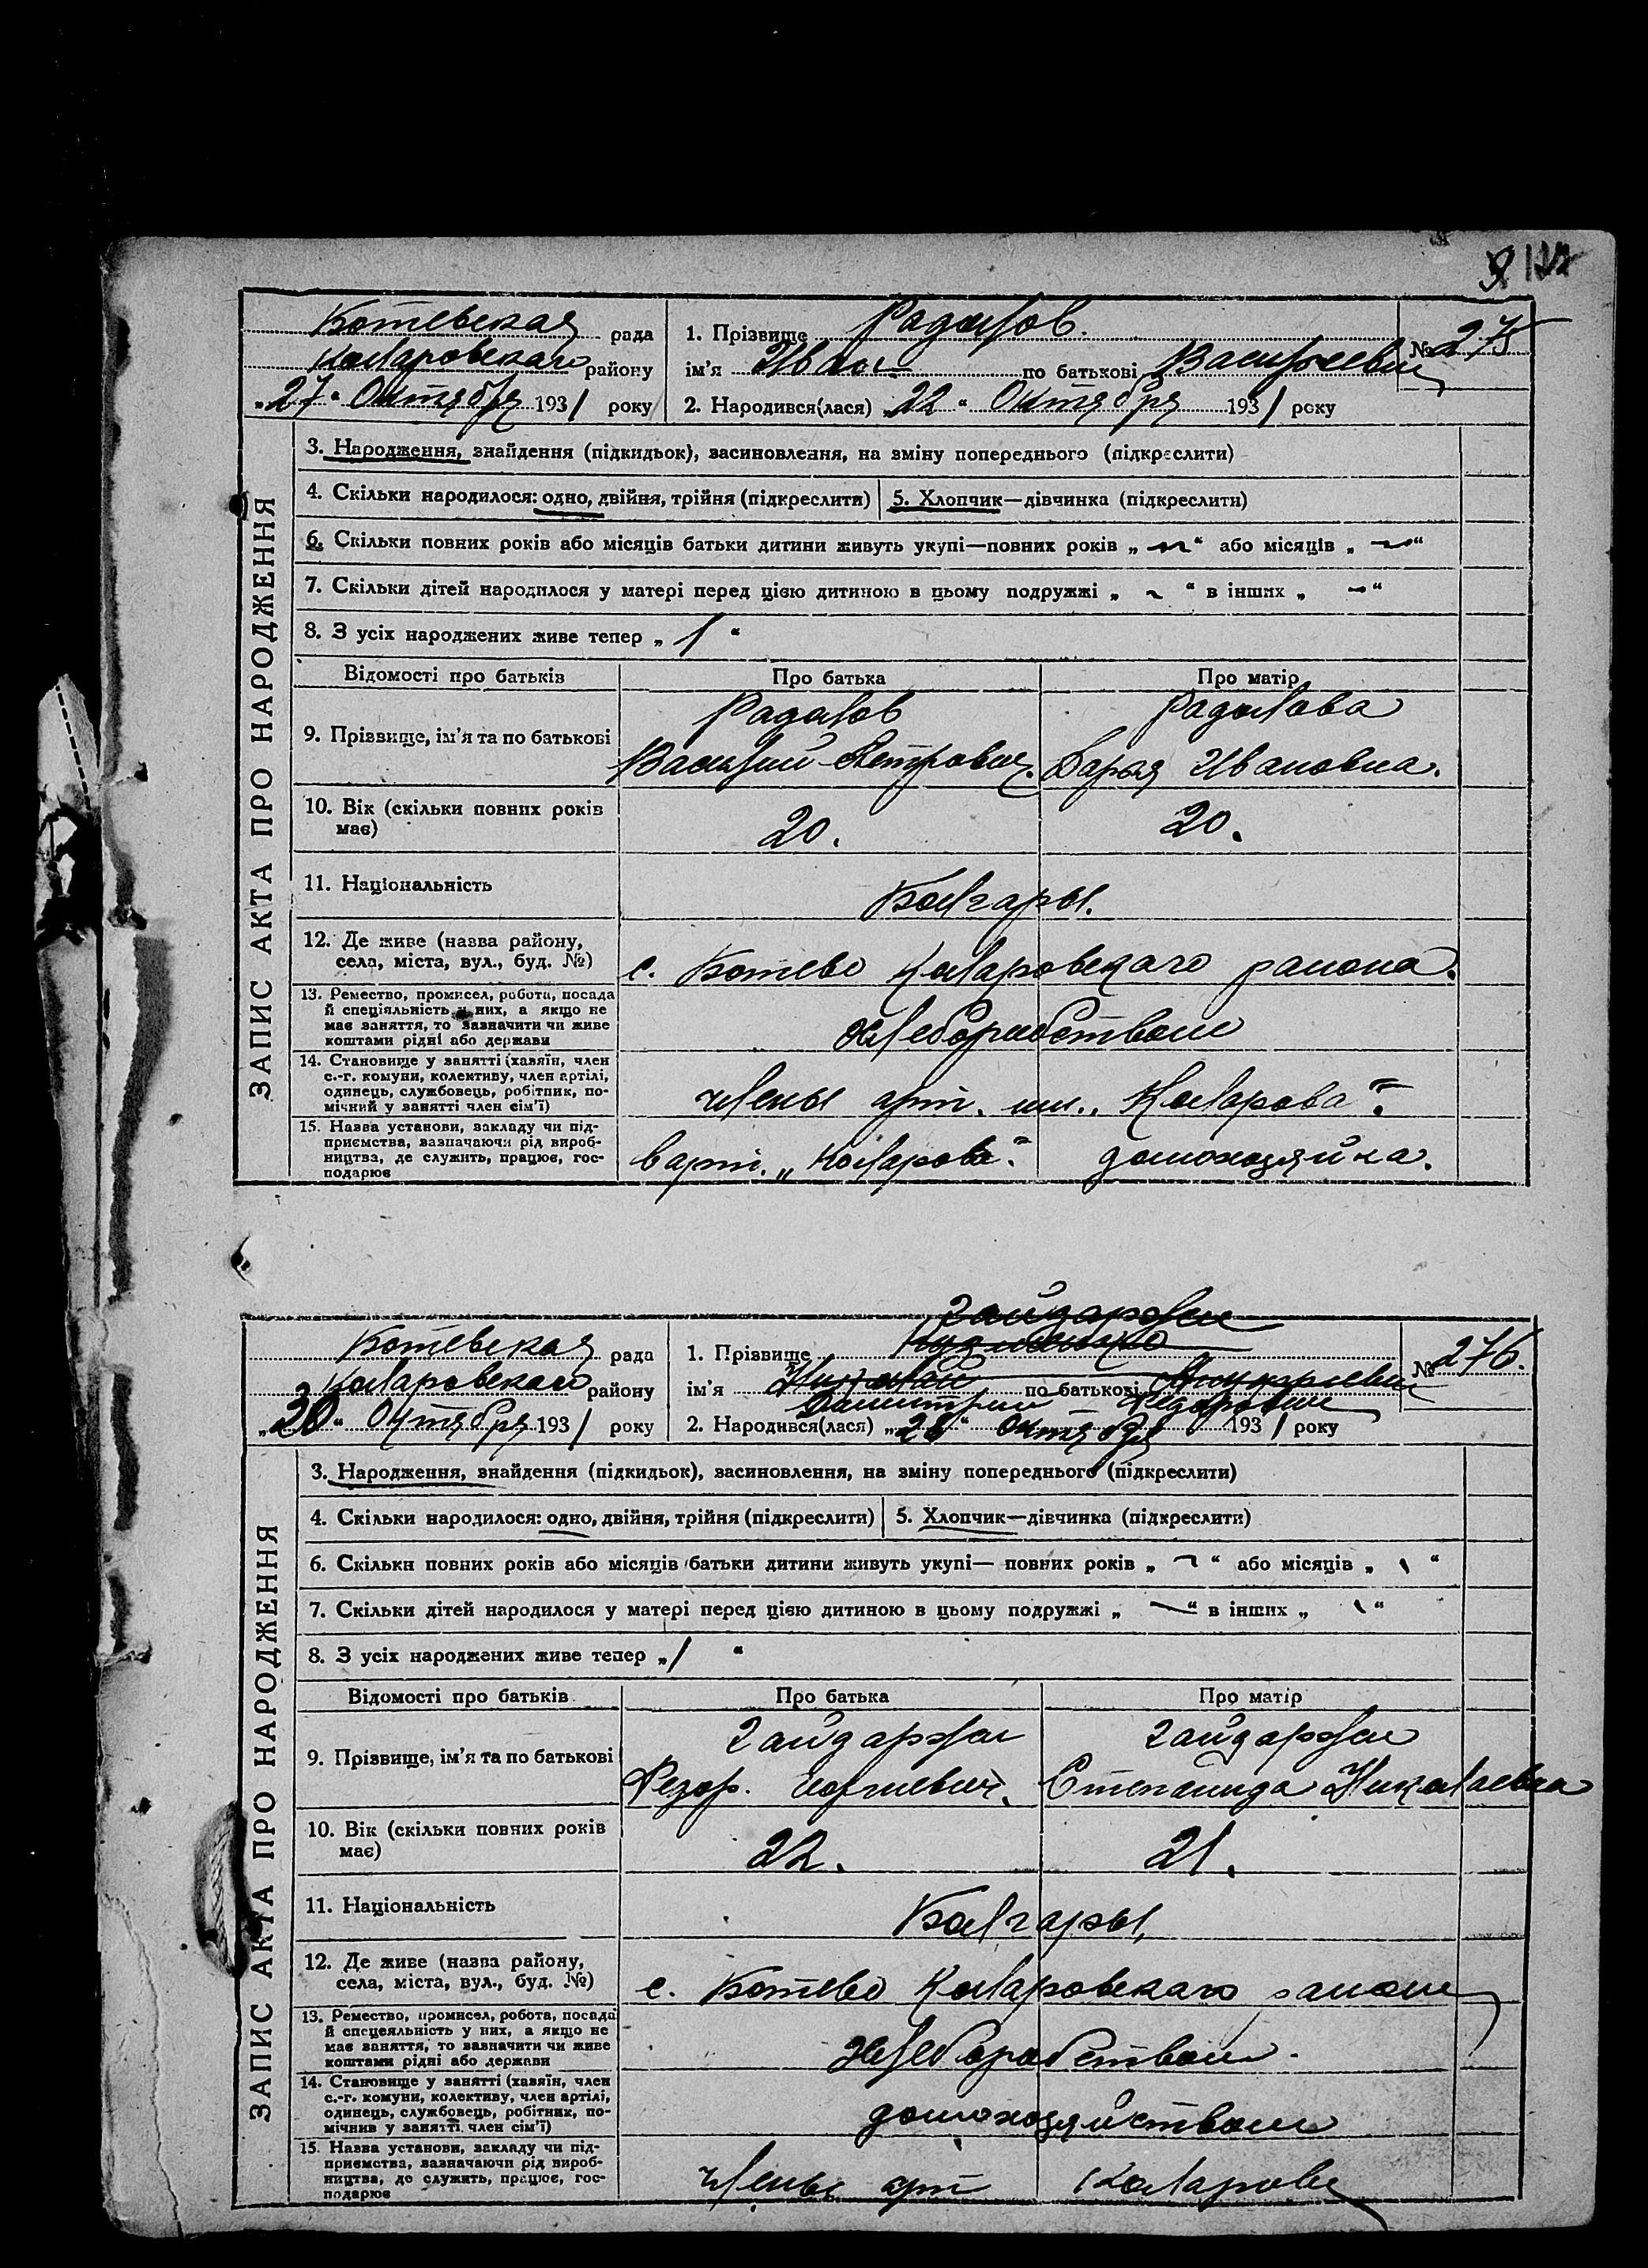 Ботевская рада
Коларовского району
„27“ Октября 1931 року
1. Прізвище Радолов.
№ 275
ім'я Иван по батькові Васильевич
2. Народився(лася) „22“ Октября 1931 року
ЗАПИС АКТА ПРО НАРОДЖЕННЯ
3. Народження, знайдення (підкидьок), засиновлення, на зміну попереднього (підкреслити)
4. Скільки народилося: одно, двійня, трійня (підкреслити) 5. Хлопчик—дівчинка (підкреслити)
6. Скільки повних років або місяців батьки дитини живуть укупі—повних років „ — “ або місяців „ — “
7. Скільки дітей народилося у матері перед цією дитиною в цьому подружжі „ — “ в інших „ — “
8. З усіх народжених живе тепер „ 1 “
Відомості про батьків Про батька Про матір
9. Прізвище, ім'я та по батькові
Радолов Радолова
Василий Петрович. Дарья Ивановна.
10. Вік (скільки повних років
має)
20. 20.
11. Національність
Болгары.
12. Де живе (назва району,
села, міста, вул., буд. №)
с. Ботево Коларовского района.
13. Ремество, промисел, робота, посада
й спеціяльність у них, а якщо не
має заняття, то зазначити чи живе
коштами рідні або держави
Хлеборобством
14. Становище у занятті (хазяїн, член
с.-г. комуни, колективу, член артілі,
одинець, службовець, робітник, по-
мічний у занятті член сім'ї)
члены арт. им. „Коларова“.
15. Назва установи, закладу чи під-
приємства, зазначаючи рід вироб-
ництва, де служить, працює, гос-
подарює
в арт. „Коларова“. домохозяйка.
Ботевская рада
Коларовского району
„30“ Октября 1931 року
Гайдаржи
1. Прізвище
№ 276.
ім'я по батькові
Димитрий Федорович
2. Народився(лася) „28“ Октября 1931 року
ЗАПИС АКТА ПРО НАРОДЖЕННЯ
3. Народження, знайдення (підкидьок), засиновлення, на зміну попереднього (підкреслити)
4. Скільки народилося: одно, двійня, трійня (підкреслити) 5. Хлопчик—дівчинка (підкреслити)
6. Скільки повних років або місяців батьки дитини живуть укупі— повних років „ — “ або місяців „ — “
7. Скільки дітей народилося у матері перед цією дитиною в цьому подружжі „ — “ в інших „ — “
8. З усіх народжених живе тепер „ 1 “
Відомості про батьків Про батька Про матір
9. Прізвище, ім'я та по батькові
Гайдаржи Гайдаржи
Федор. Степанида Николаевна
10. Вік (скільки повних років
має)
22. 21.
11. Національність
Болгары,
12. Де живе (назва району,
села, міста, вул., буд. №)
с. Ботево Коларовского района
13. Ремество, промисел, робота, посада
й спецеяльність у них, а якщо не
має заняття, то зазначити чи живе
коштами рідні або держави
Хлеборобством.
14. Становище у занятті (хазяїн, член
с.-г. комуни, колективу, член артілі,
одинець, службовець, робітник, по-
мічнив у занятті член сім'ї)
домохозяйством
15. Назва установи, закладу чи під-
приємства, зазначаючи рід вироб-
ництва, де служить, працює, гос-
подарює
члены арт Коларова